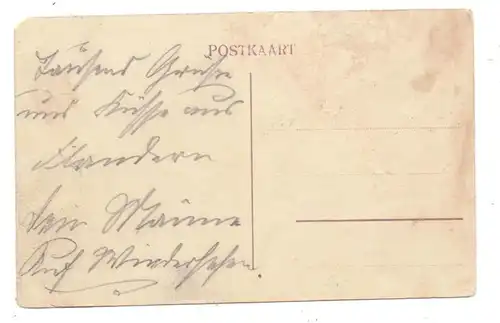 POSTKAART
Tausend Grüße
und Küsse aus
Flandern
Dein Männe
Auf Wiedersehen.